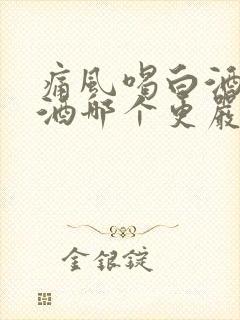 痛风喝白酒
酒那个更严
金银锭